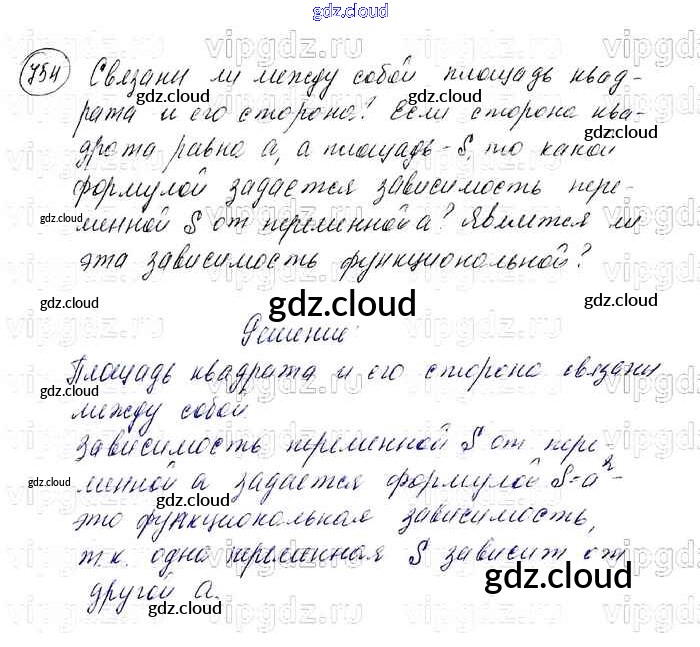 gdz.cloud
754 Связани ли между собой площадь квад-
рата и его сторона? Если сторона ква-
драта равна a, а площадь - S, то какой
формулой задается зависимость пере-
менной S от переменной a? Является ли
эта зависимость функциональной?
gdz.cloud
Решение:
Площадь квадрата и его сторона связани
между собой.
Зависимость переменной S от пере-
менной a задается формулой S=a² -
это функциональная зависимость,
т.к. одна переменная S зависит от
другой a.
gdz.cloud